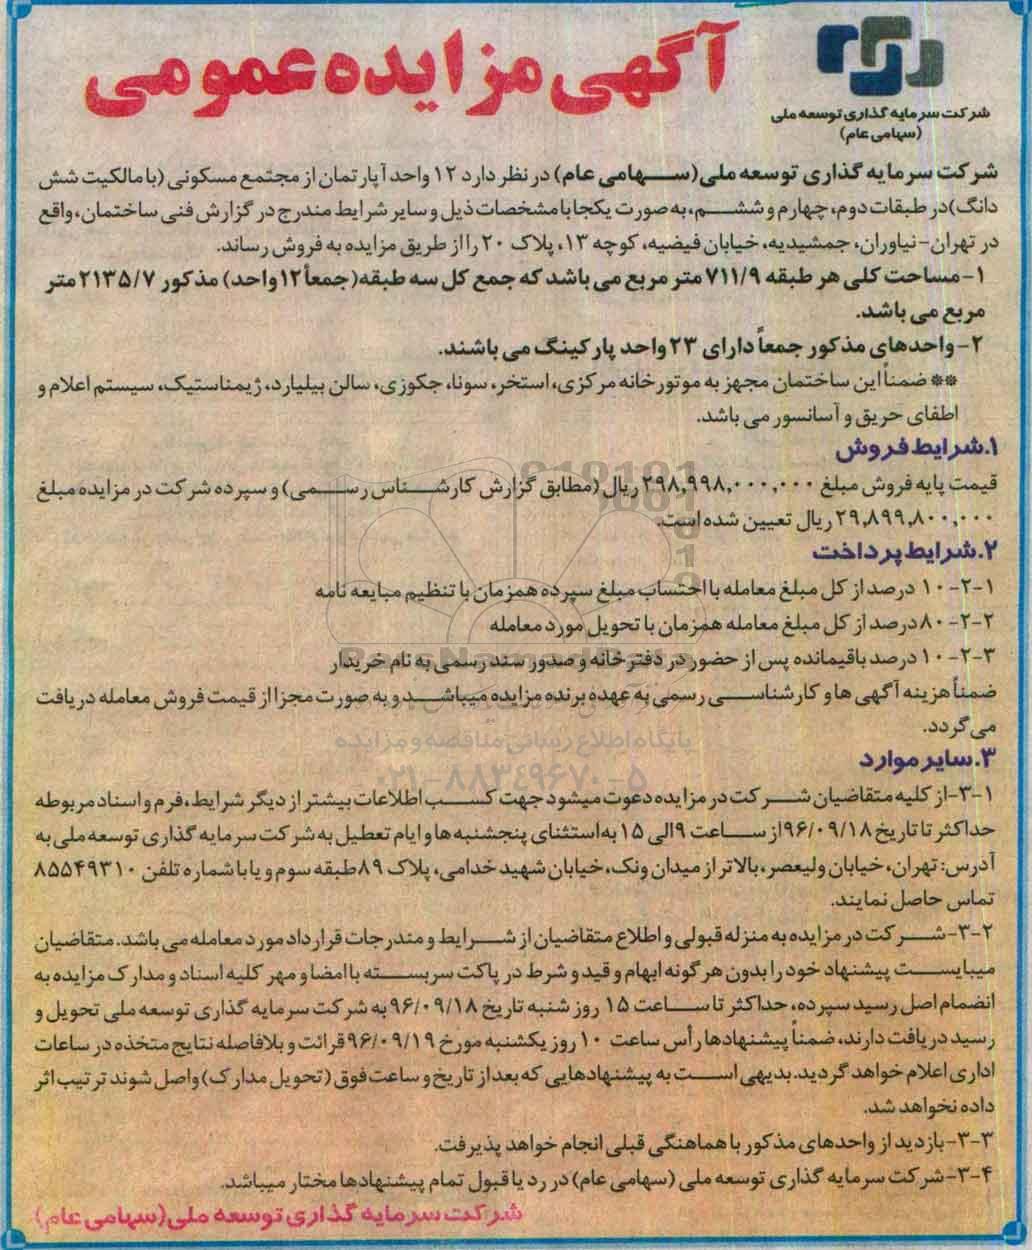 آگهی مزایده عمومی
شرکت سرمایه گذاری توسعه ملی
(سهامی عام)
شرکت سرمایه گذاری توسعه ملی(سهامی عام) در نظر دارد ۱۲ واحد آپارتمان از مجتمع مسکونی (با مالکیت شش
دانگ)در طبقات دوم، چهارم و ششم، به صورت یکجا با مشخصات ذیل و سایر شرایط مندرج در گزارش فنی ساختمان، واقع
در تهران- نیاوران، جمشیدیه، خیابان فیضیه، کوچه ۱۳، پلاک ۲۰ را از طریق مزایده به فروش رساند.
۱- مساحت کلی هر طبقه ۷۱۱/۹ متر مربع می باشد که جمع کل سه طبقه(جمعاً ۱۲ واحد) مذکور ۲۱۳۵/۷ متر
مربع می باشد.
۲- واحدهای مذکور جمعاً دارای ۲۳ واحد پارکینگ می باشند.
** ضمناً این ساختمان مجهز به موتورخانه مرکزی، استخر، سونا، جکوزی، سالن بیلیارد، ژیمناستیک، سیستم اعلام و
اطفای حریق و آسانسور می باشد.
۱.شرایط فروش
قیمت پایه فروش مبلغ ۲۹۸,۹۹۸,۰۰۰,۰۰۰ ریال (مطابق گزارش کارشناس رسمی) و سپرده شرکت در مزایده مبلغ
۲۹,۸۹۹,۸۰۰,۰۰۰ ریال تعیین شده است.
۲.شرایط پرداخت
۲-۱- ۱۰ درصد از کل مبلغ معامله با احتساب مبلغ سپرده همزمان با تنظیم مبایعه نامه
۲-۲- ۸۰ درصد از کل مبلغ معامله همزمان با تحویل مورد معامله
۲-۳- ۱۰ درصد باقیمانده پس از حضور در دفترخانه و صدور سند رسمی به نام خریدار
ParsNamadData
ضمناً هزینه آگهی ها و کارشناسی رسمی به عهده برنده مزایده میباشد و به صورت مجزا از قیمت فروش معامله دریافت
می گردد.
پایگاه اطلاع رسانی مناقصه و مزایده
۳.سایر موارد
۰۲۱-۸۸۳۴۹۶۷۰-۵
۳-۱- از کلیه متقاضیان شرکت در مزایده دعوت میشود جهت کسب اطلاعات بیشتر از دیگر شرایط، فرم و اسناد مربوطه
حداکثر تا تاریخ ۹۶/۰۹/۱۸ از ساعت ۹ الی ۱۵ به استثنای پنجشنبه ها و ایام تعطیل به شرکت سرمایه گذاری توسعه ملی به
آدرس: تهران، خیابان ولیعصر، بالاتر از میدان ونک، خیابان شهید خدامی، پلاک ۸۹ طبقه سوم و یا با شماره تلفن ۸۵۵۴۹۳۱۰
تماس حاصل نمایند.
۳-۲- شرکت در مزایده به منزله قبولی و اطلاع متقاضیان از شرایط و مندرجات قرارداد مورد معامله می باشد. متقاضیان
میبایست پیشنهاد خود را بدون هر گونه ابهام و قید و شرط در پاکت سربسته با امضا و مهر کلیه اسناد و مدارک مزایده به
انضمام اصل رسید سپرده، حداکثر تا ساعت ۱۵ روز شنبه تاریخ ۹۶/۰۹/۱۸ به شرکت سرمایه گذاری توسعه ملی تحویل و
رسید دریافت دارند، ضمناً پیشنهادها رأس ساعت ۱۰ روز یکشنبه مورخ ۹۶/۰۹/۱۹ قرائت و بلافاصله نتایج متخذه در ساعات
اداری اعلام خواهد گردید. بدیهی است به پیشنهادهایی که بعد از تاریخ و ساعت فوق (تحویل مدارک) واصل شوند ترتیب اثر
داده نخواهد شد.
۳-۳- بازدید از واحدهای مذکور با هماهنگی قبلی انجام خواهد پذیرفت.
۳-۴- شرکت سرمایه گذاری توسعه ملی (سهامی عام) در رد یا قبول تمام پیشنهادها مختار میباشد.
شرکت سرمایه گذاری توسعه ملی(سهامی عام)